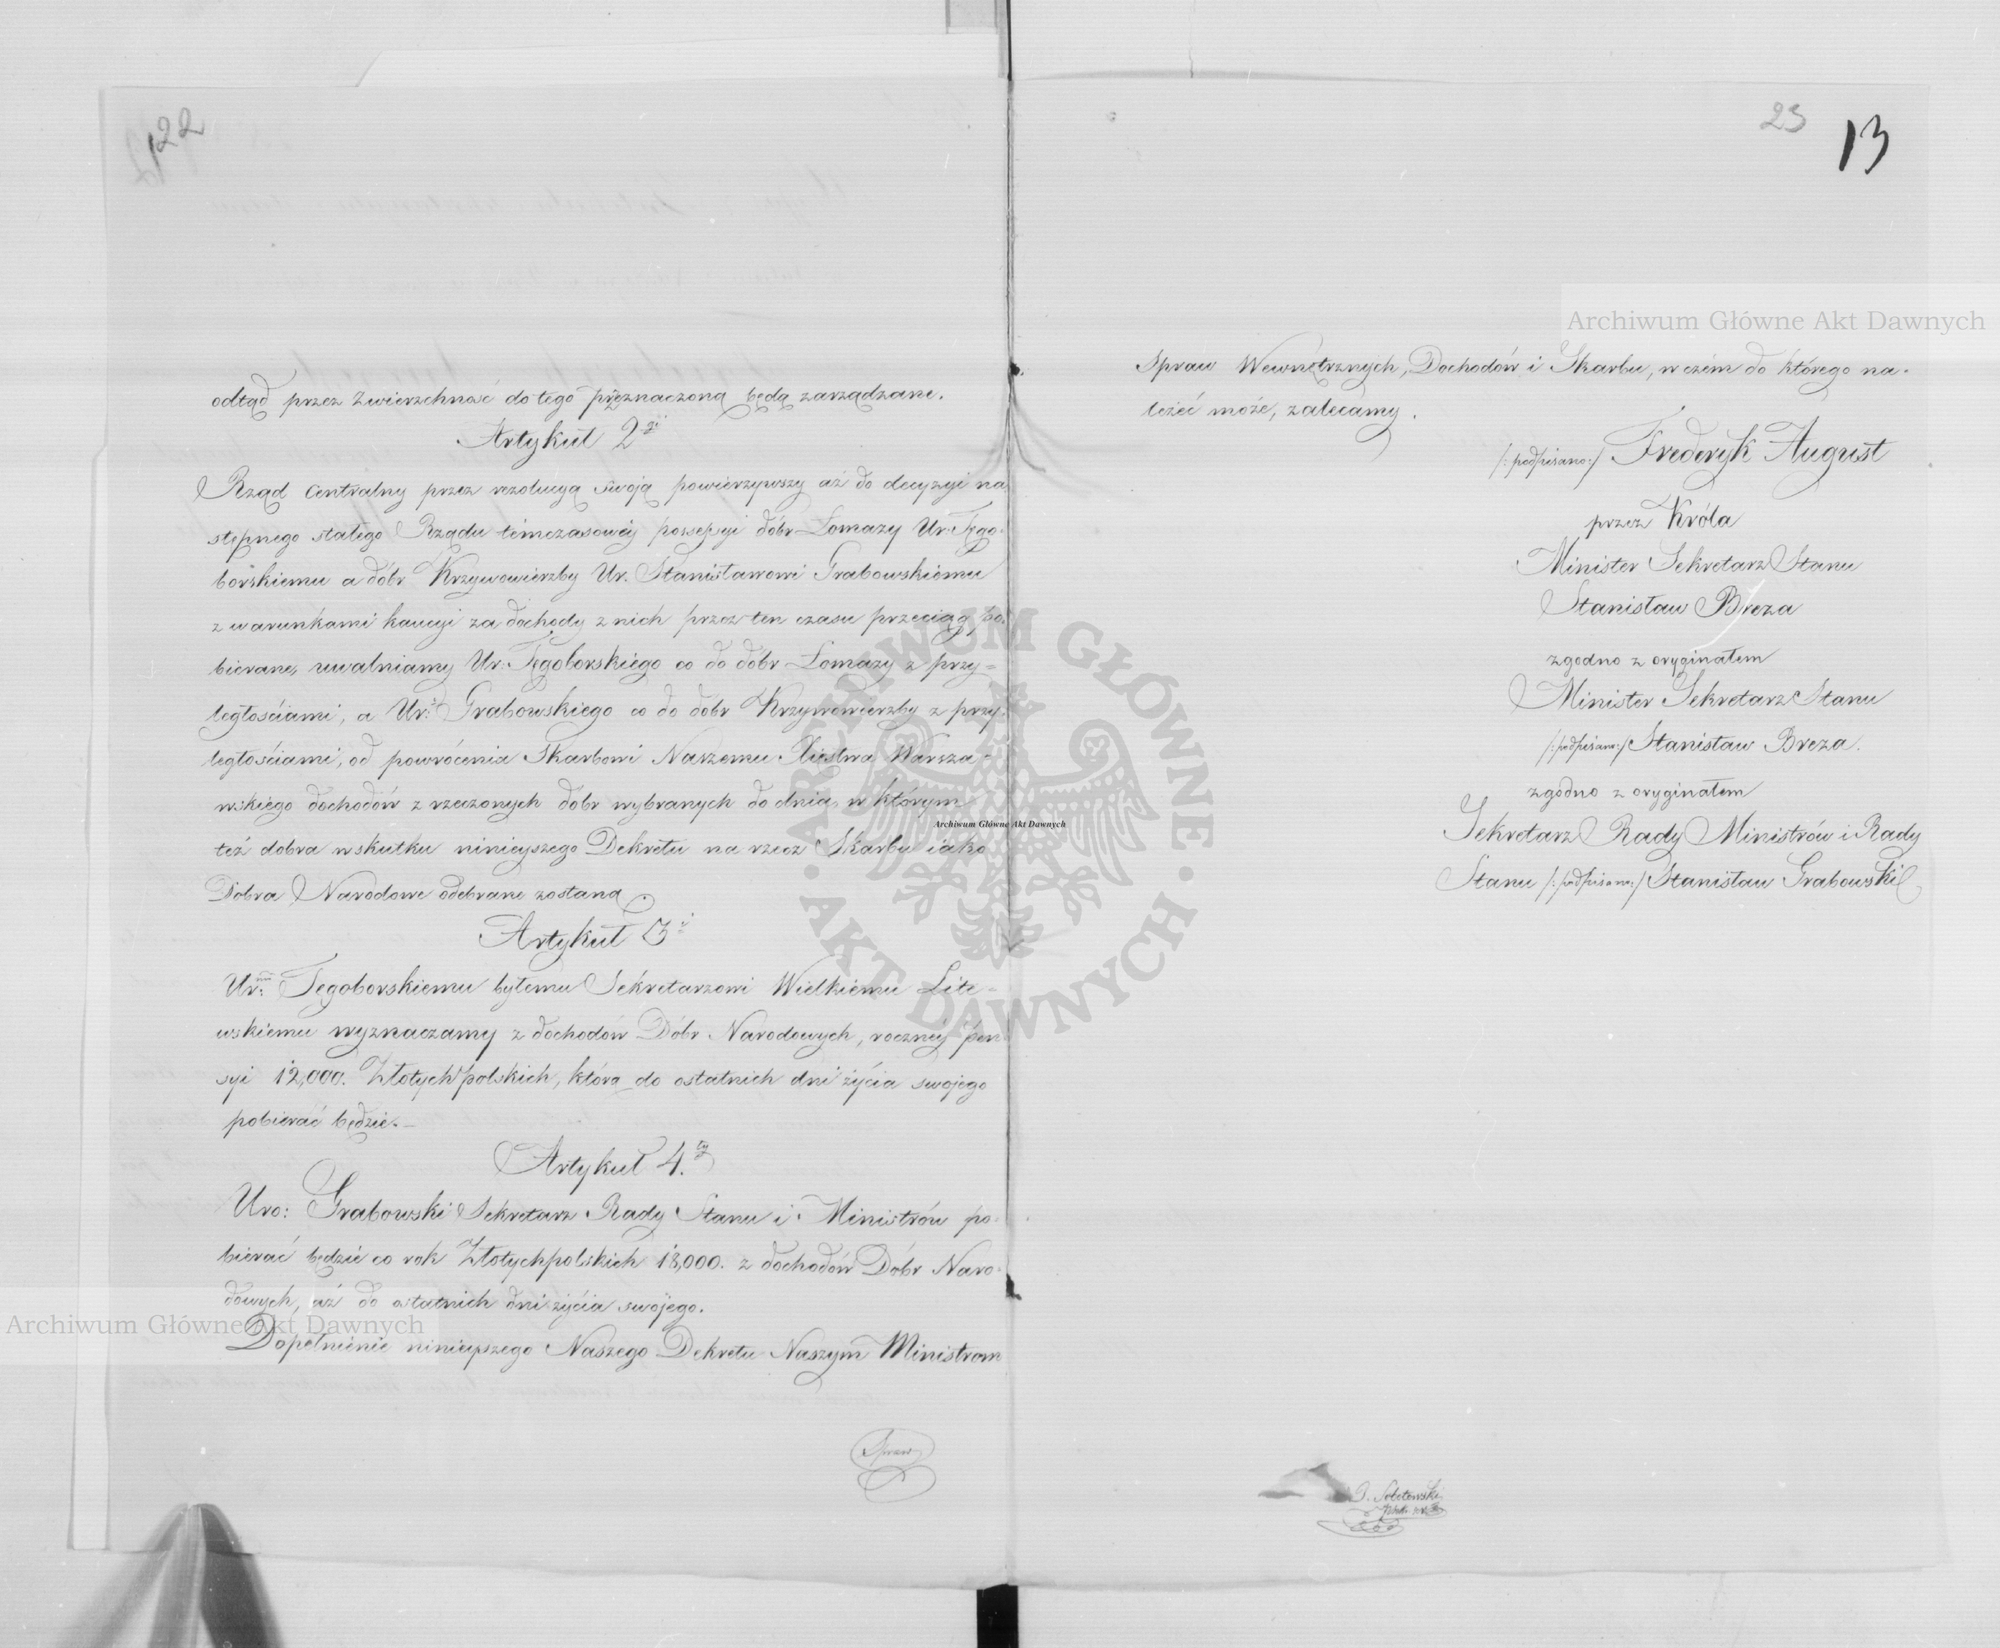 22
odtąd przez Zwierzchność do tego przeznaczoną będą zarządzane.
Artykuł 2gi
Rząd Centralny przez rezolucyą swoją powierzywszy aż do decyzyi na-
stępnego stałego Rządu témczasowéy possessyi dóbr Łomazy Ur: Tęgo-
borskiemu a dóbr Krzywowierzby Ur. Stanisławowi Grabowskiemu
z warunkami kaucyi za dochody z nich przez ten czasu przeciąg po-
bierane, uwalniamy Ur: Tęgoborskiego co do dóbr Łomazy z przy-
ległościami, a Ur: Grabowskiego co do dóbr Krzywowierzby z przy-
ległościami, od powrócenia Skarbowi Naszemu Xięstwa Warsza-
wskiego dochodów z rzeczonych dóbr wybranych do dnia, w którym
też dobra w skutku ninieyszego Dekretu na rzecz Skarbu iako
Dobra Narodowe odebrane zostaną
Artykuł 3i
Ur: Tęgoborskiemu byłemu Sekretarzowi Wielkiemu Lite-
wskiemu wyznaczamy z dochodów Dóbr Narodowych, rocznéy pen-
syi 12,000. Złotych polskich, którą do ostatnich dni życia swojego
pobierać będzie.–
Artykuł 4.ty
Uro: Grabowski Sekretarz Rady Stanu i Ministrów po-
bierać będzie co rok Złotych polskich 18,000. z dochodów Dóbr Naro-
dowych, aż do ostatnich dni życia swojego.
Dopełnienie ninieyszego Naszego Dekretu Naszym Ministrom
Spraw
23
13
Spraw Wewnętrznych, Dochodów i Skarbu, w czém do którego na-
leżeć może, zalecamy.
/:podpisano:/ Frederyk August
przez Króla
Minister Sekretarz Stanu
Stanisław Breza
zgodno z oryginałem
Minister Sekretarz Stanu
/:podpisano:/ Stanisław Breza.
zgodno z oryginałem
Sekretarz Rady Ministrów i Rady
Stanu /:podpisano:/ Stanisław Grabowski
Archiwum Główne Akt Dawnych
Archiwum Główne Akt Dawnych
Archiwum Główne Akt Dawnych
ARCHIWUM GŁÓWNE AKT DAWNYCH